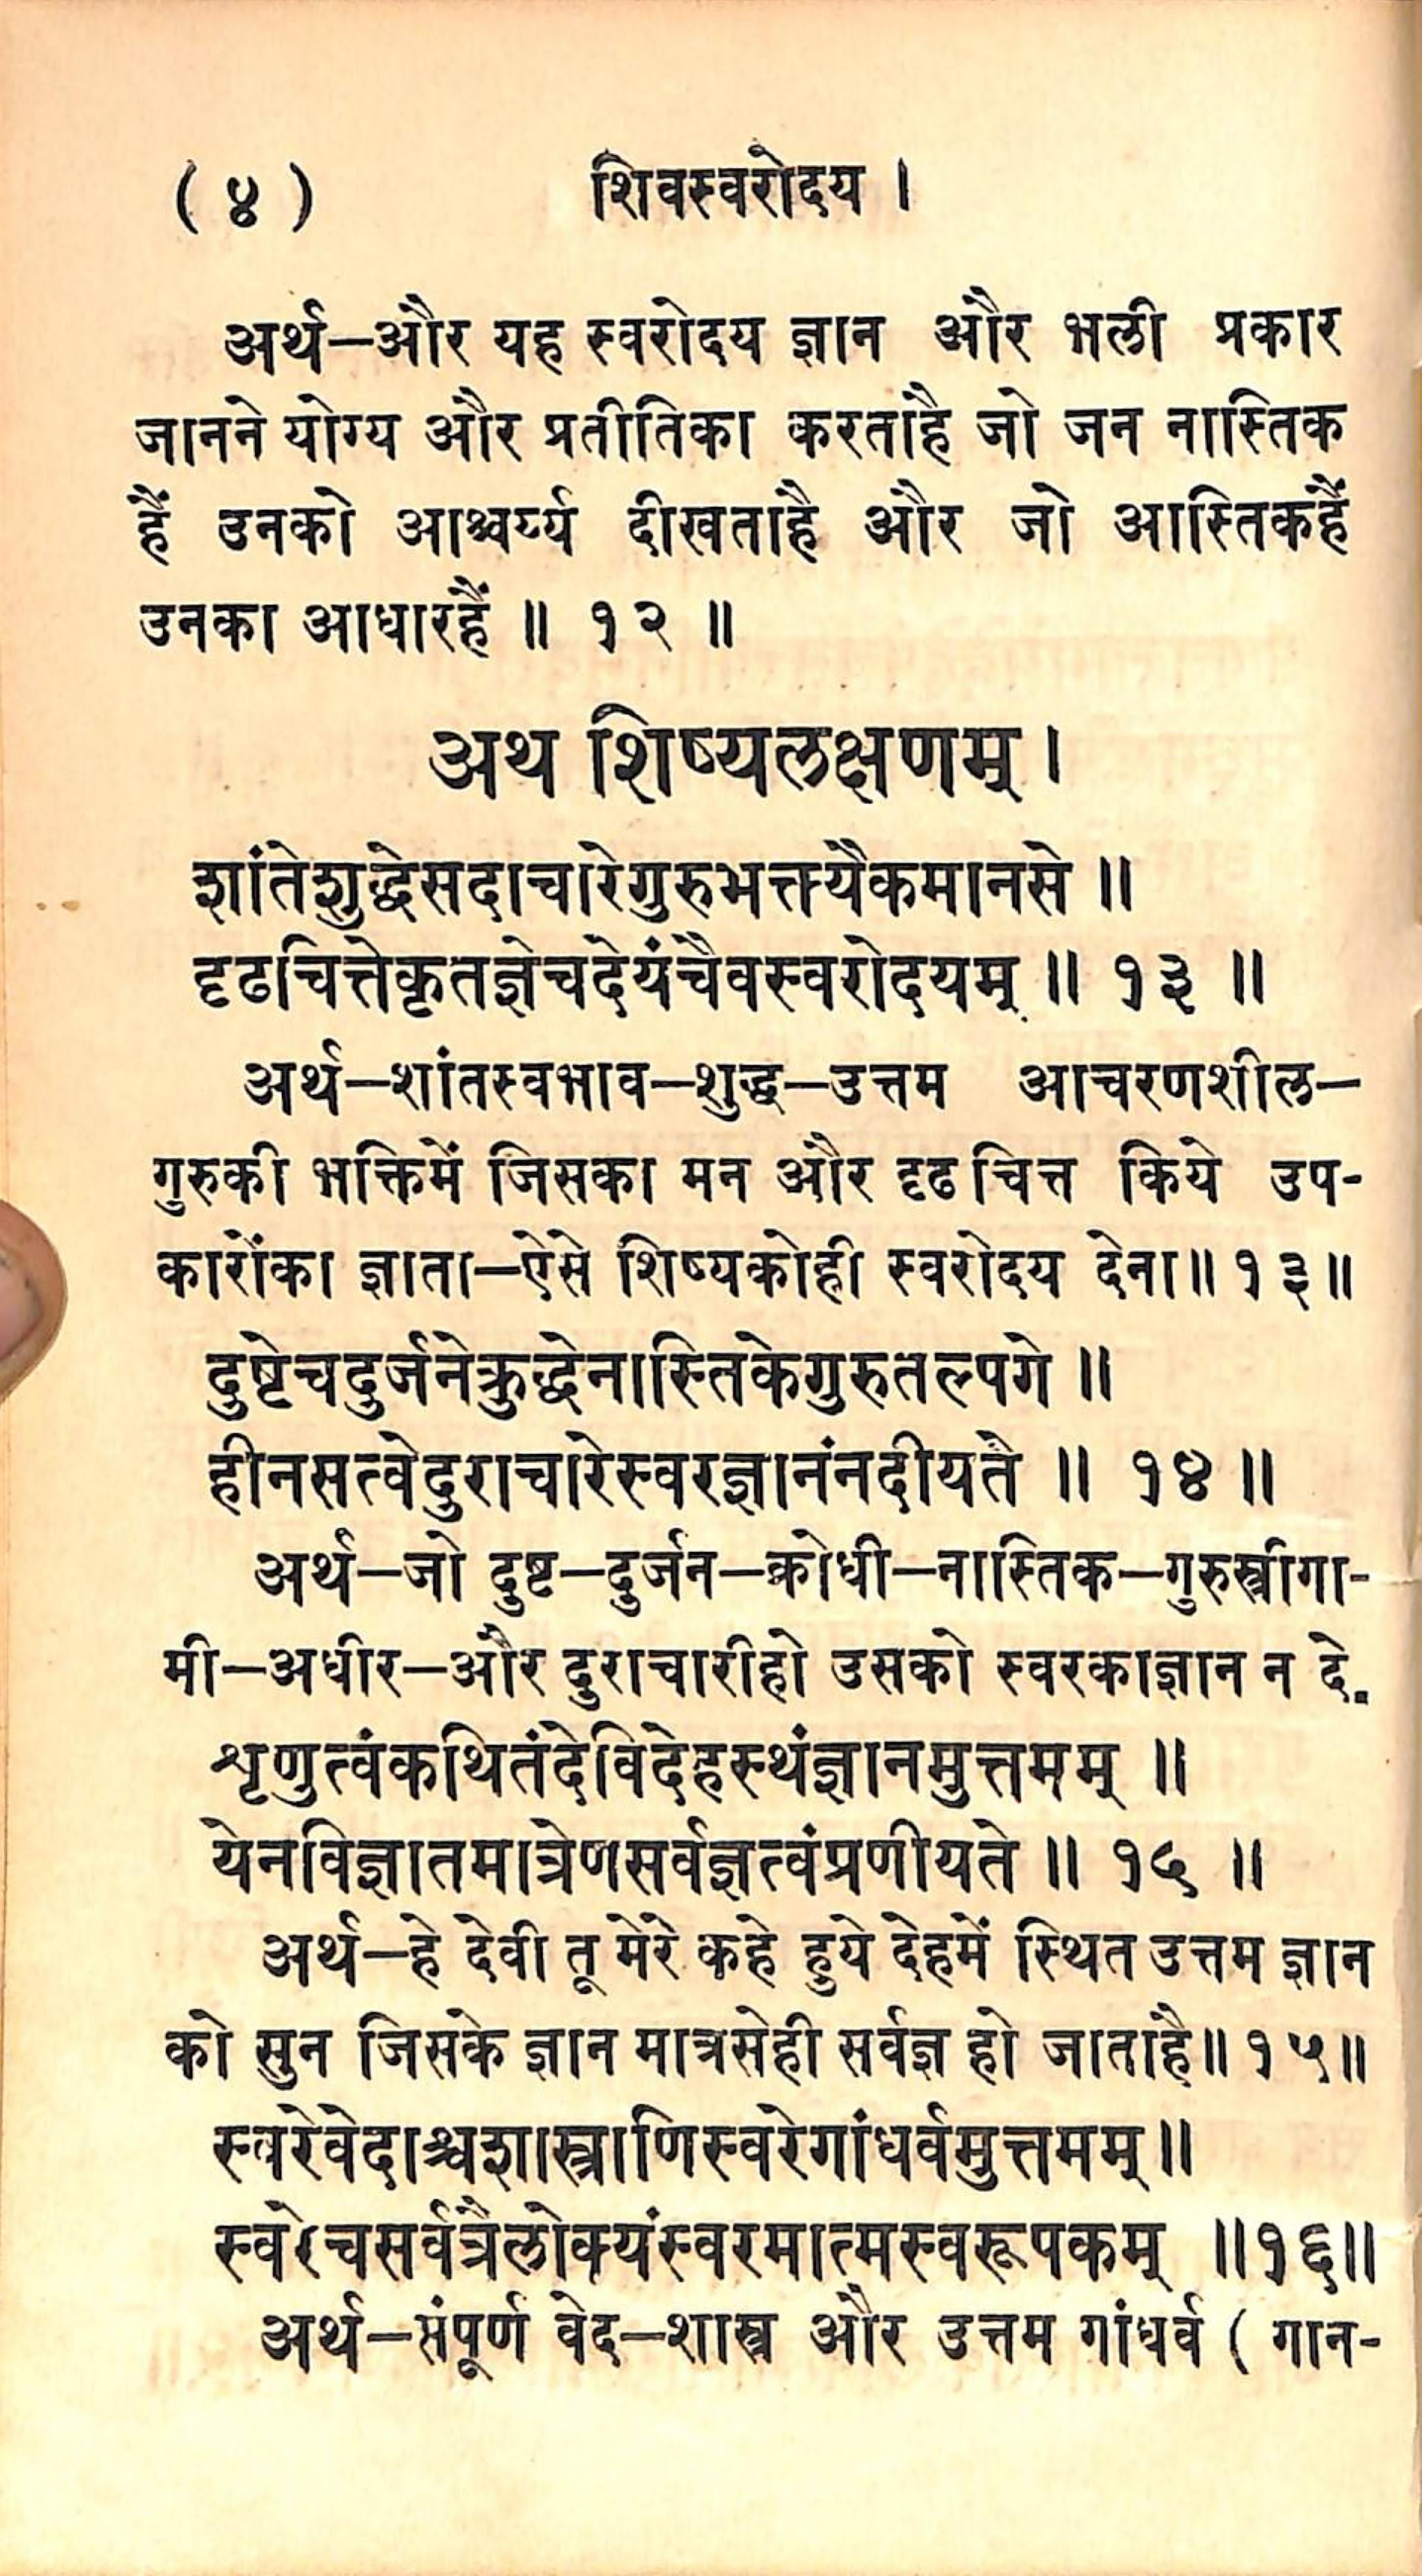 ( ४ ) शिवस्वरोदय ।
अर्थ—और यह स्वरोदय ज्ञान और भली प्रकार
जानने योग्य और प्रतीतिका करताहै जो जन नास्तिक
हैं उनको आश्चर्य्य दीखताहै और जो आस्तिकहैं
उनका आधारहैं ॥ १२ ॥
अथ शिष्यलक्षणम् ।
शांतेशुद्धेसदाचारेगुरुभक्त्यैकमानसे ॥
दृढचित्तेकृतज्ञेचदेयंचैवस्वरोदयम् ॥ १३ ॥
अर्थ—शांतस्वभाव—शुद्ध—उत्तम आचरणशील—
गुरुकी भक्तिमें जिसका मन और दृढ चित्त किये उप-
कारोंका ज्ञाता—ऐसे शिष्यकोही स्वरोदय देना॥ १३॥
दुष्टेचदुर्जनेक्रुद्धेनास्तिकेगुरुतल्पगे ॥
हीनसत्वेदुराचारेस्वरज्ञानंनदीयते ॥ १४ ॥
अर्थ—जो दुष्ट—दुर्जन—क्रोधी—नास्तिक—गुरुस्त्रीगा-
मी—अधीर—और दुराचारीहो उसको स्वरकाज्ञान न दे.
शृणुत्वंकथितंदेविदेहस्थंज्ञानमुत्तमम् ॥
येनविज्ञातमात्रेणसर्वज्ञत्वंप्रणीयते ॥ १५ ॥
अर्थ—हे देवी तू मेरे कहे हुये देहमें स्थित उत्तम ज्ञान
को सुन जिसके ज्ञान मात्रसेही सर्वज्ञ हो जाताहै॥ १५॥
स्वरेवेदाश्चशास्त्राणिस्वरेगांधर्वमुत्तमम्॥
स्वरेचसर्वत्रैलोक्यंस्वरमात्मस्वरूपकम् ॥१६॥
अर्थ—संपूर्ण वेद—शास्त्र और उत्तम गांधर्व ( गान-